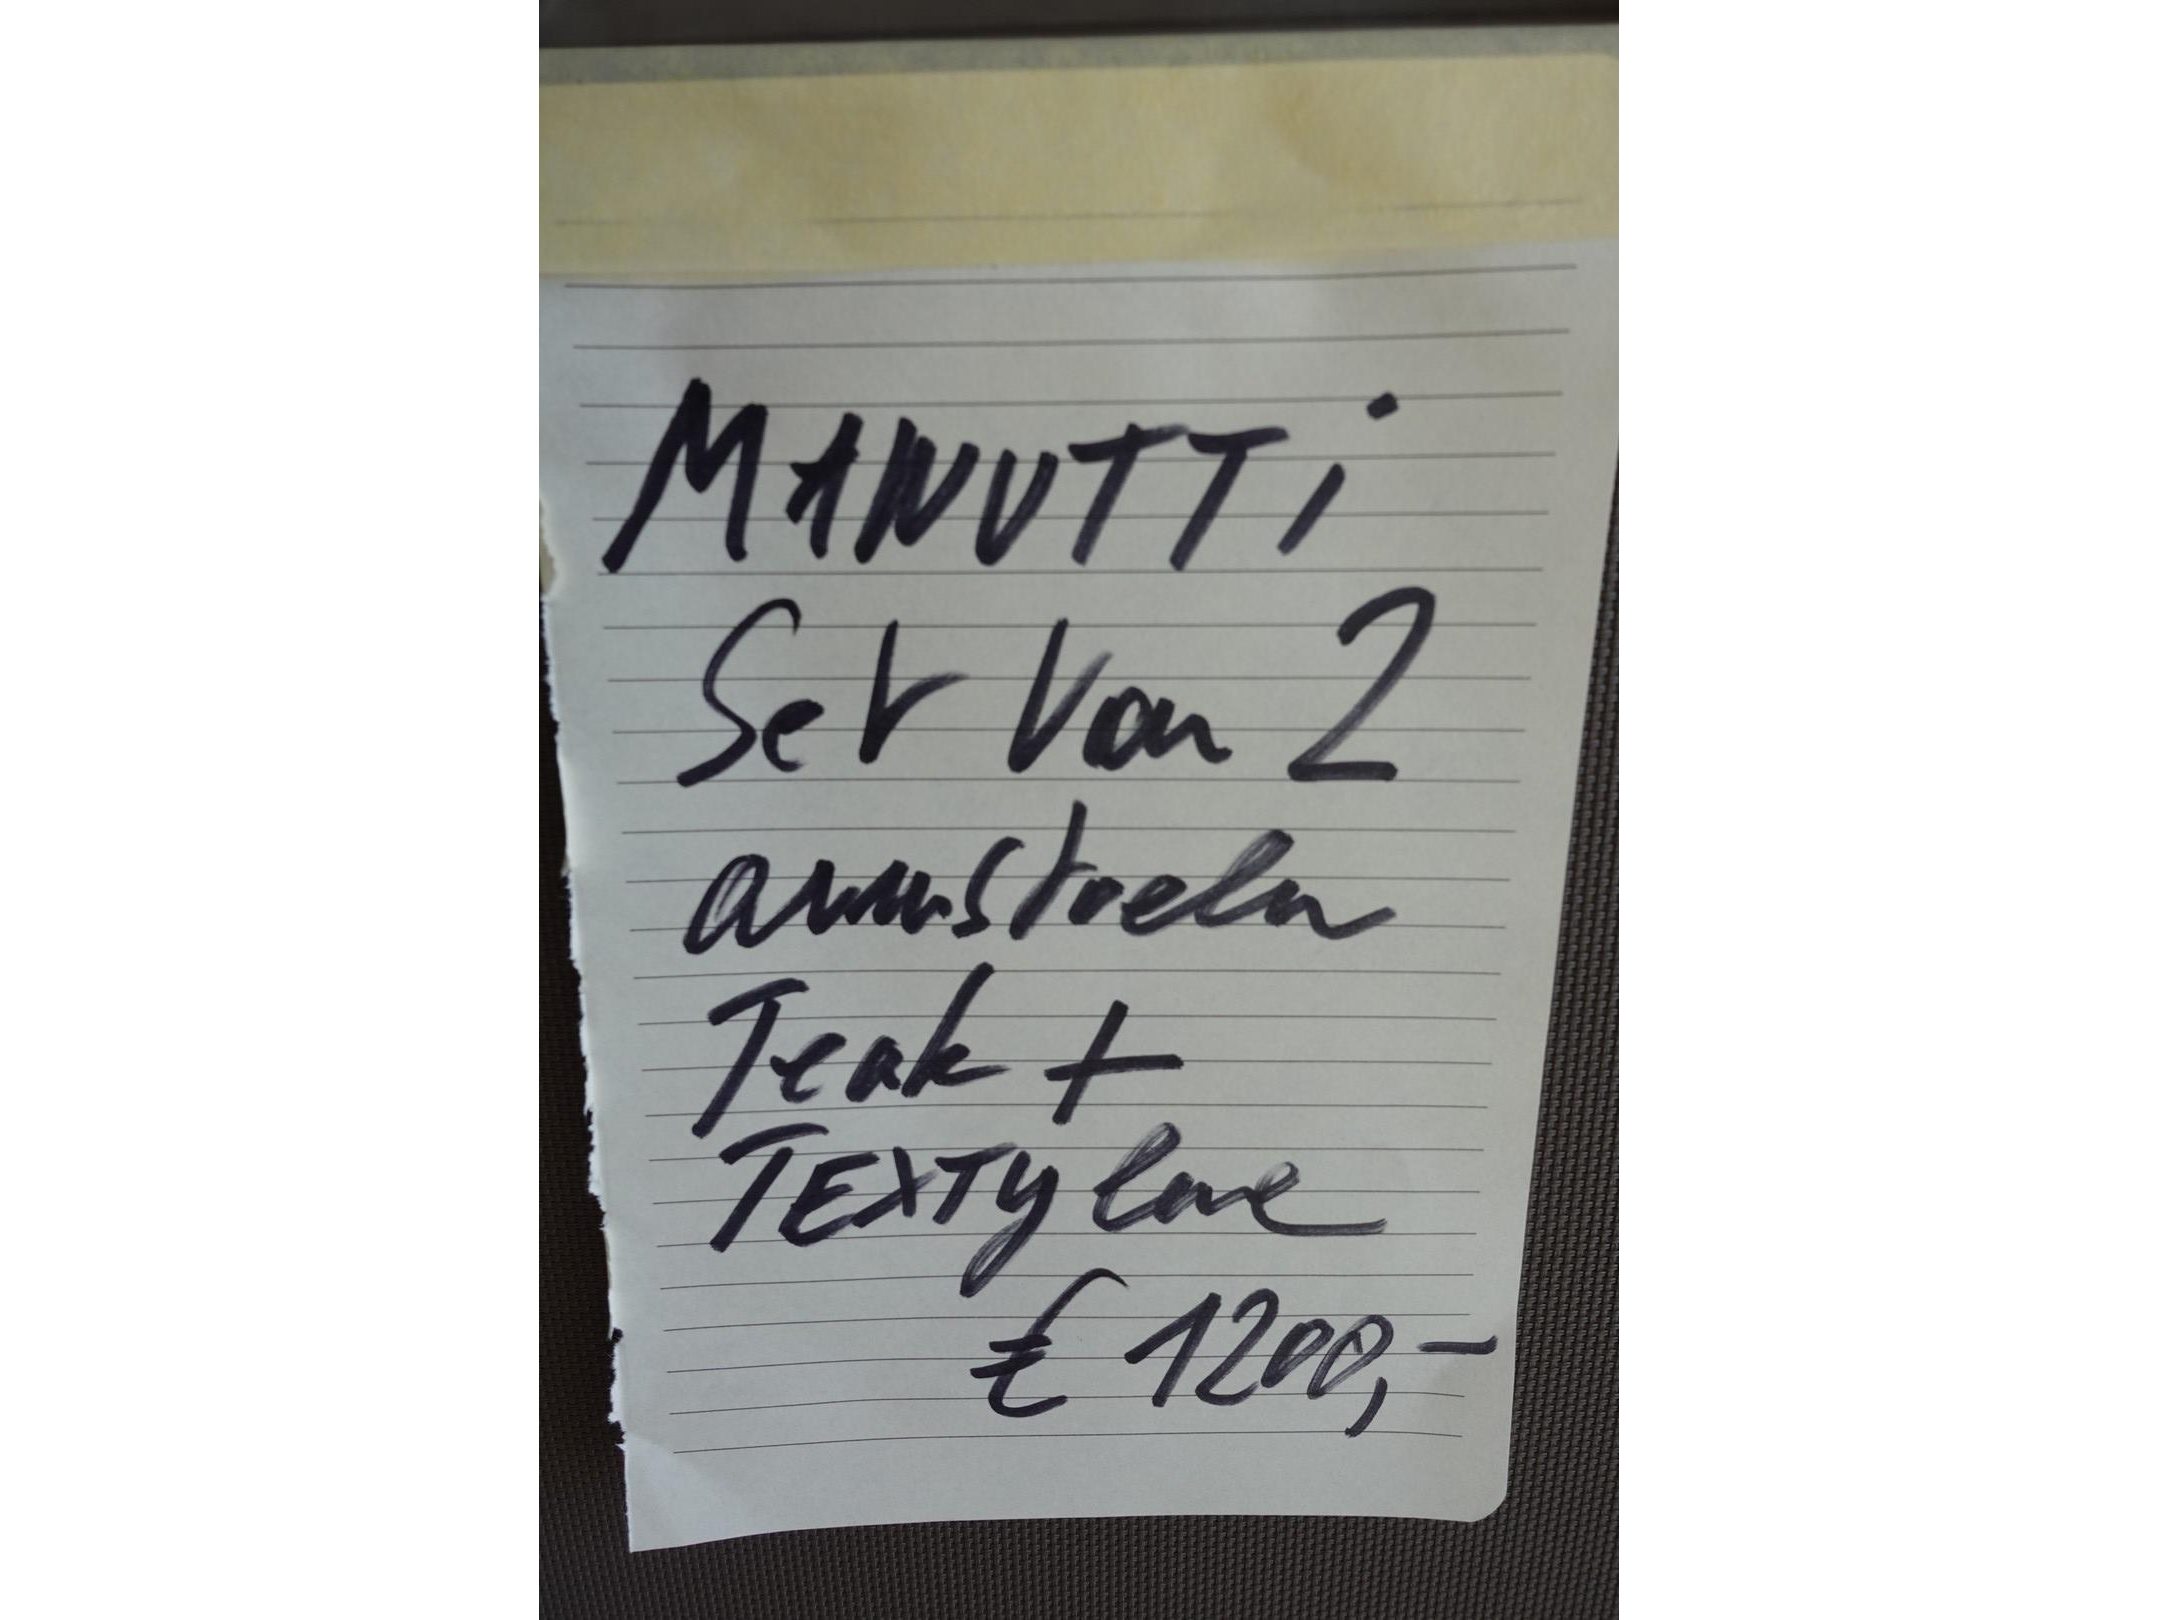 MANUTTi
Set Von 2
armstoeln
Teak +
TEXTylene
€ 1200,-